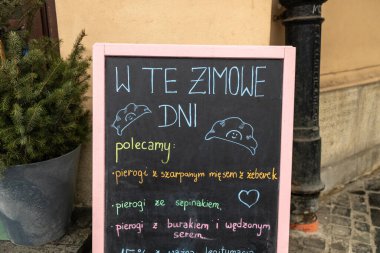 W TE ZIMOWE
DNI
polecamy:
• pierogi z szarpanym mięsem z żeberek
• pierogi ze szpinakiem
• pierogi z burakiem i wędzonym
serem
15% z ważną legitymacją